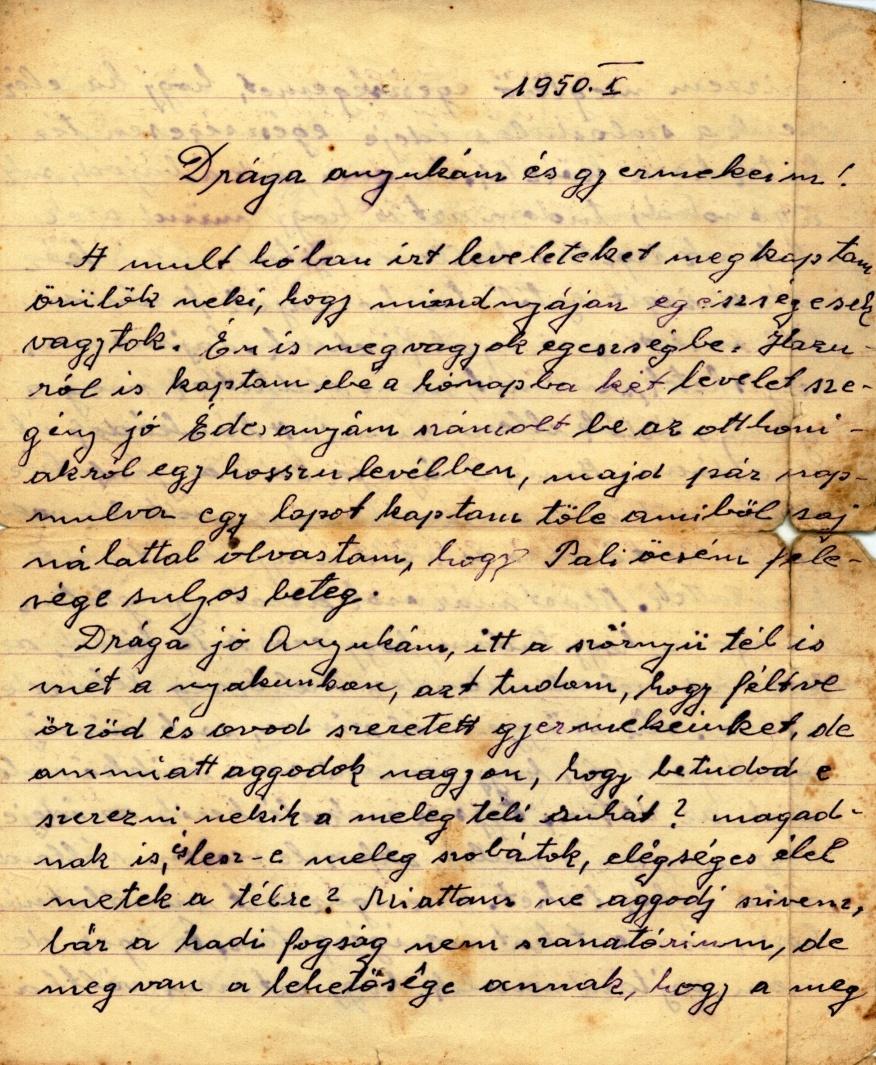 1950. X
Drága anyukám és gyermekeim!
A mult hóban írt leveleteket megkaptam
örülök neki, hogy mindnyájan egészségesek
vagytok. Én is megvagyok egeszségbe. Hazu-
ról is kaptam ebe a hónapba két levelet sze-
gény jó Édesanyám számolt be az otthoni-
akról egy hosszu levélben, majd pár nap-
mulva egy lapot kaptam töle amiböl saj
nálattal olvastam, hogy Pali öcsém fele-
sége sulyos beteg.
Drága jó Anyukám, itt a szörnyü tél is
mét a nyakunkon, azt tudom, hogy féltve
örzöd és ovod szeretett gyermekeinket, de
ammiatt aggodok nagyon, hogy betudod e
szerezni nekik a meleg téli ruhát? magad-
nak is, és lesz-e meleg szobátok, elégséges élel
metek a télre? Miattam ne aggodj szivem,
bár a hadi fogság nem szanatórium, de
meg van a lehetösége annak, hogy a meg